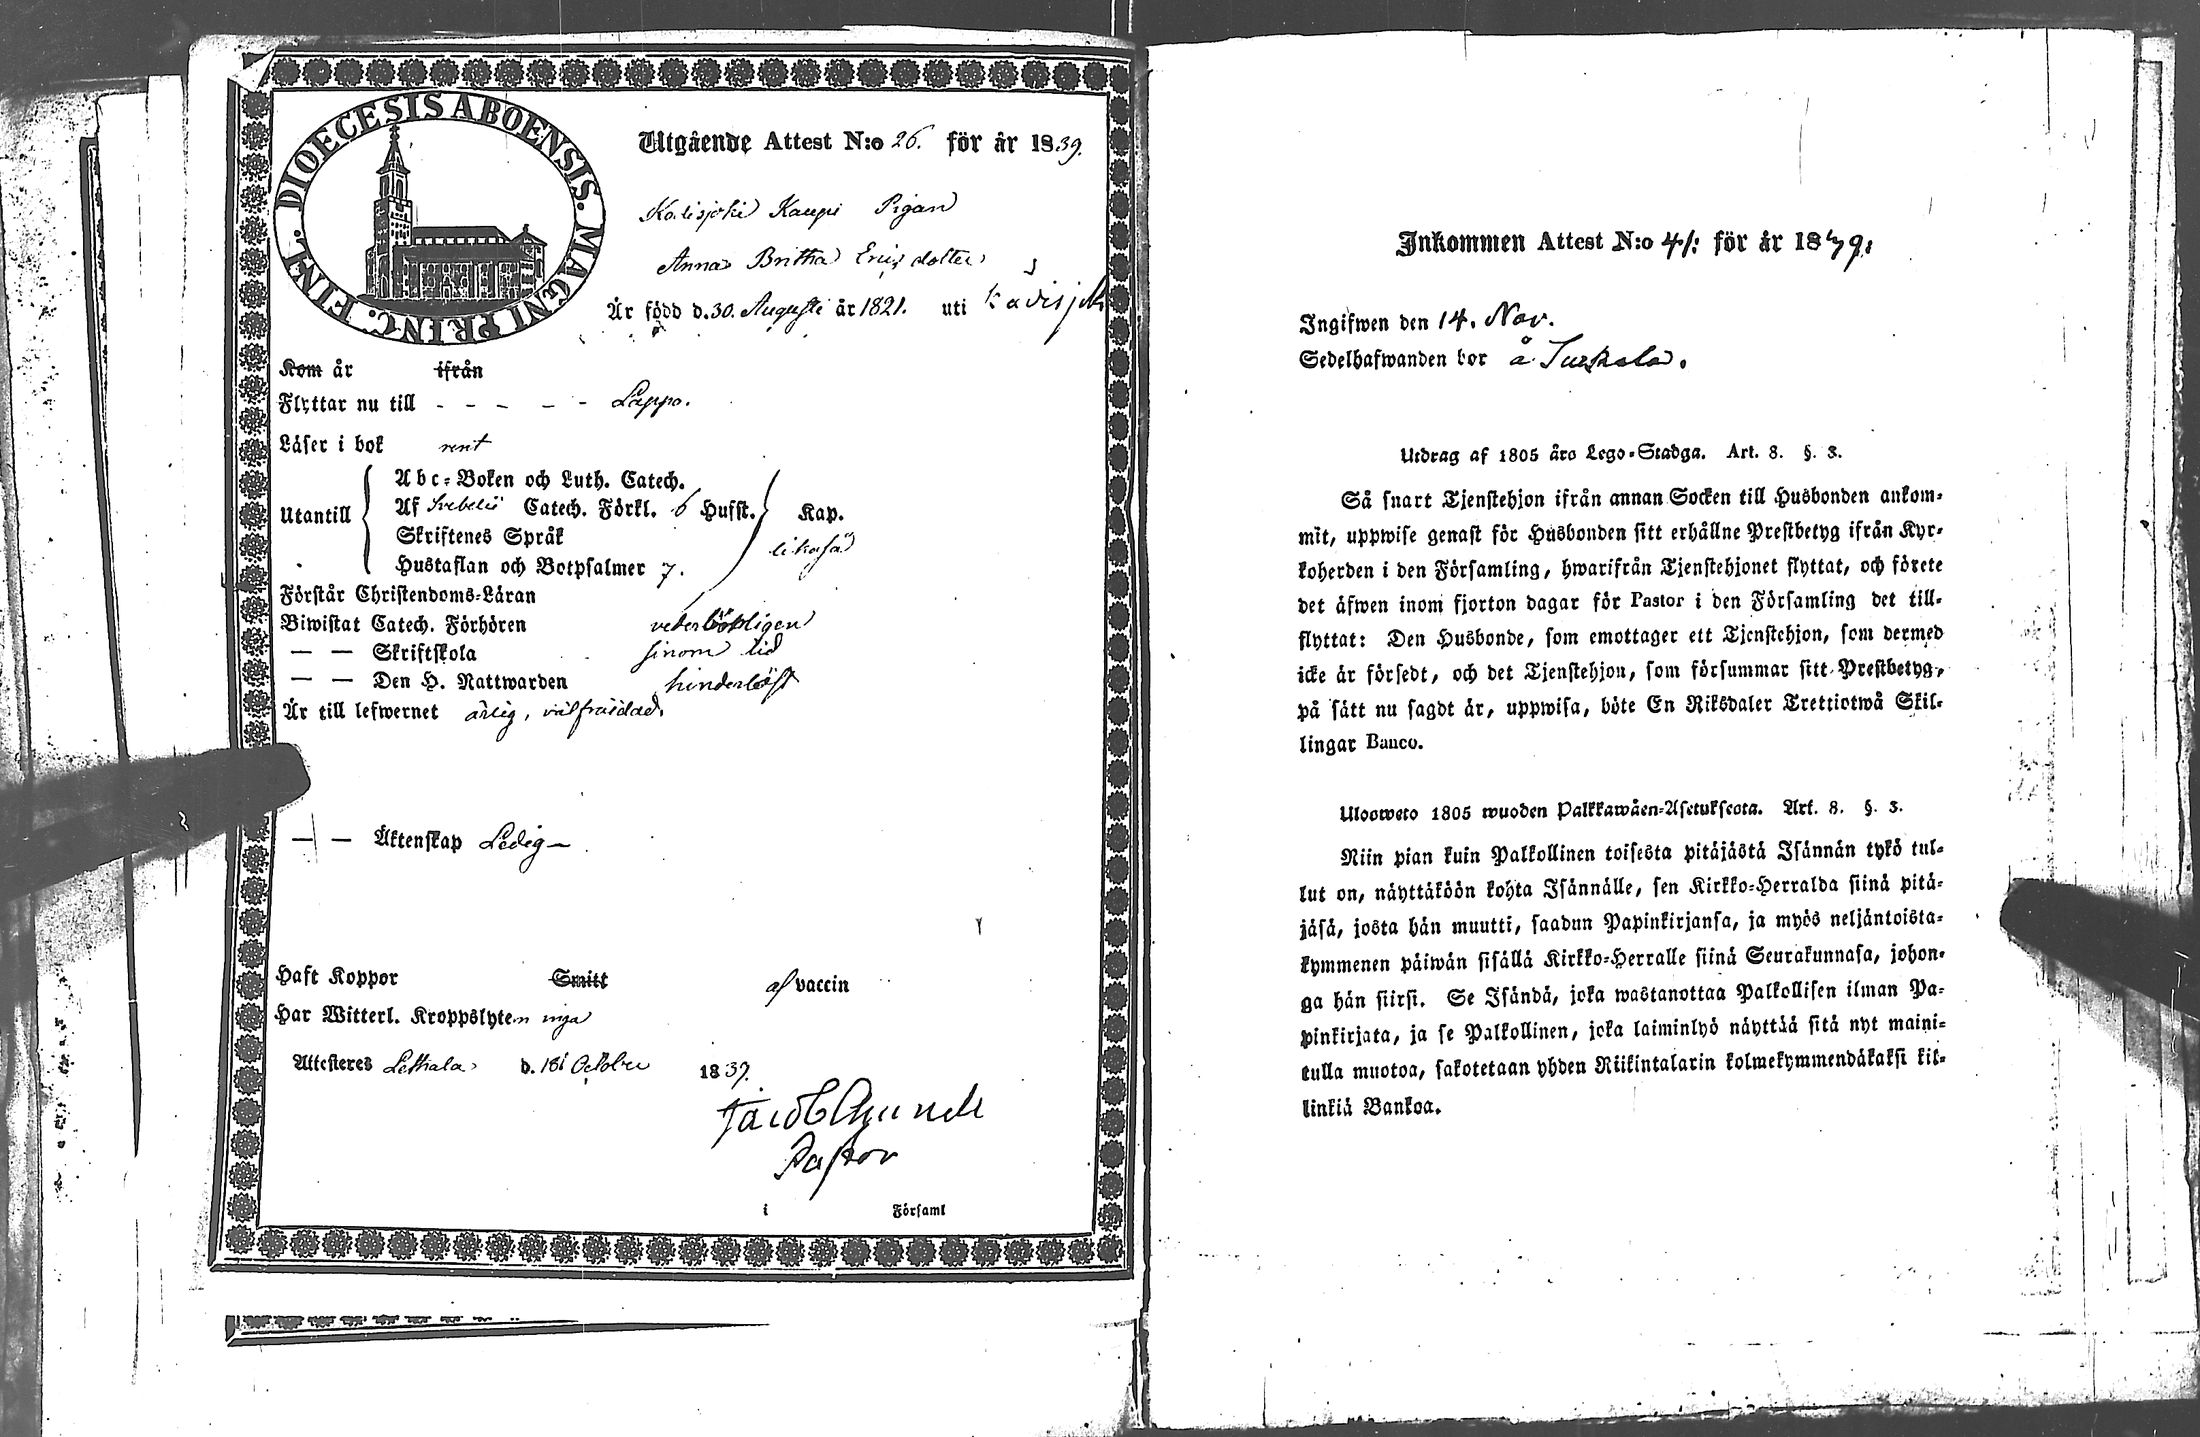 DIOECESIS ABOENSIS. MAGNI PRINC. FINL.
Utgående Attest N:o 26. för år 1839.
Kadisjoki Kaupi Pigan
Anna Britha Ericsdotter
Är född d. 30. Augusti år 1821. uti Kadisjoki
Kom år ifrån
Flyttar nu till - - - - - Lappo.
Läser i bok rent
Utantill
Abc-Boken och Luth. Catech.
Af Svebelii Catech. Förkl. 6 Hufst. Kap.
Skriftenes Språk likaså
Hustaflan och Botpsalmer 7.
Förstår Christendoms-Läran
Biwistat Catech. Förhören vederbörligen
— — Skriftskola sinom tid
— — Den H. Nattwarden hinderlöst
Är till lefwernet ärlig, välfräjdad.
— — Äktenskap Ledig
Haft Koppor Smitt af vaccin
Har Witterl. Kroppslyten inga
Attesteres Lethala d. 18 October 1839.
Jacob
Pastor
i Församl
Inkommen Attest N:o 41: för år 1839.
Ingifwen den 14. Nov.
Sedelhafwanden bor å
Utdrag af 1805 års Lego-Stadga. Art. 8. §. 3.
Så snart Tjenstehjon ifrån annan Socken till Husbonden ankom-
mit, uppwise genast för Husbonden sitt erhållne Prestbetyg ifrån Kyr-
koherden i den Församling, hwarifrån Tjenstehjonet flyttat, och förete
det äfwen inom fjorton dagar för Pastor i den Församling det till-
flyttat: Den Husbonde, som emottager ett Tjenstehjon, som dermed
icke är försedt, och det Tjenstehjon, som försummar sitt Prestbetyg,
på sätt nu sagdt är, uppwisa, böte En Riksdaler Trettiotwå Skil-
lingar Banco.
Ulosweto 1805 wuoden Palkkawäen-Asetuksesta. Art. 8. §. 3.
Niin pian kuin Palkollinen toisesta pitäjästä Isännän tykö tul-
lut on, näyttäköön kohta Isännälle, sen Kirkko-Herralda siinä pitä-
jäsä, josta hän muutti, saadun Papinkirjansa, ja myös neljäntoista-
kymmenen päiwän sisällä Kirkko-Herralle siinä Seurakunnasa, johon-
ga hän siirsi. Se Isändä, joka wastanottaa Palkollisen ilman Pa-
pinkirjata, ja se Palkollinen, joka laiminlyö näyttää sitä nyt maini-
tulla muotoa, sakotetaan yhden Riikintalarin kolmekymmendäkaksi kil-
linkiä Bankoa.